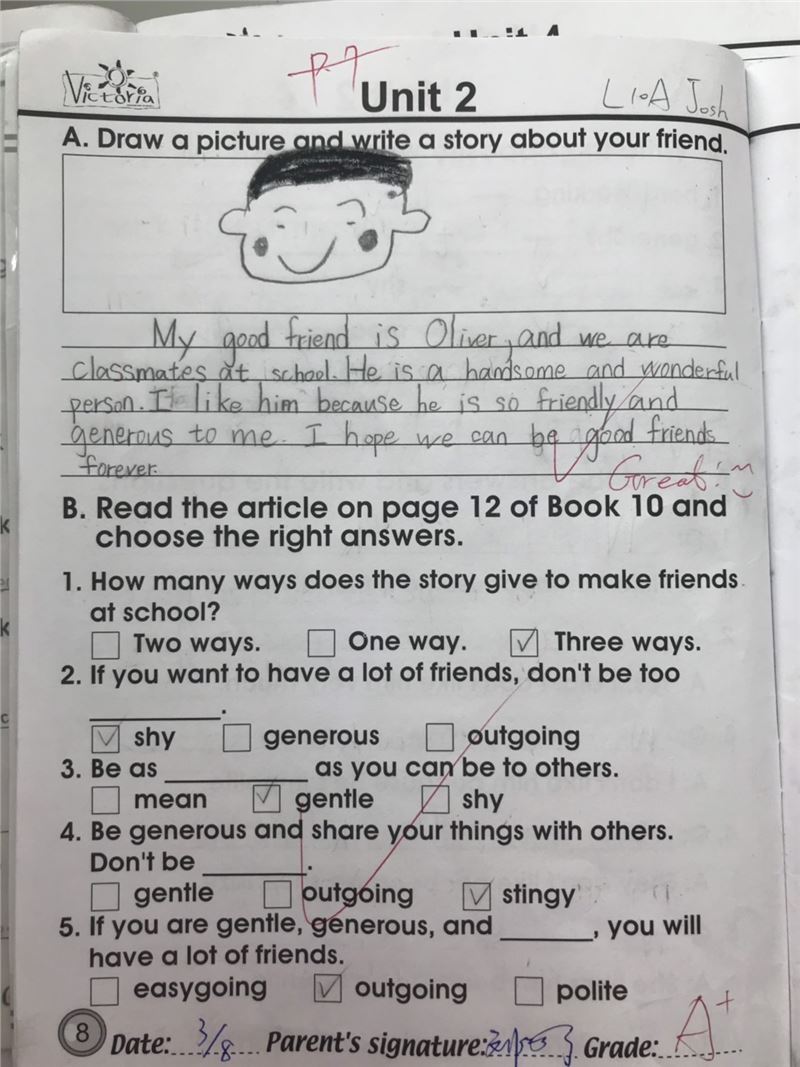 Victoria
Unit 2
L10A Josh
A. Draw a picture and write a story about your friend.
My good friend is Oliver, and we are
classmates at school. He is a handsome and wonderful
person. I like him because he is so friendly and
generous to me. I hope we can be good friends
forever.
Great!
B. Read the article on page 12 of Book 10 and
choose the right answers.
1. How many ways does the story give to make friends
at school?
Two ways. One way. Three ways.
2. If you want to have a lot of friends, don't be too
________.
shy generous outgoing
3. Be as ________ as you can be to others.
mean gentle shy
4. Be generous and share your things with others.
Don't be ________.
gentle outgoing stingy
5. If you are gentle, generous, and ______, you will
have a lot of friends.
easygoing outgoing polite
8 Date: 3/8 Parent's signature: Grade: A+